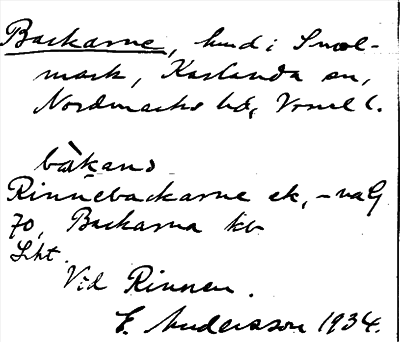 Backarne, hmd i Smol-
mark, Karlanda sn,
Nordmarks hd, Vrml l.
båkanɔ
Rinnebackarne ek, -na G
70, Backarna kb
Lht.
Vid Rinnen.
E. Andersson 1934.